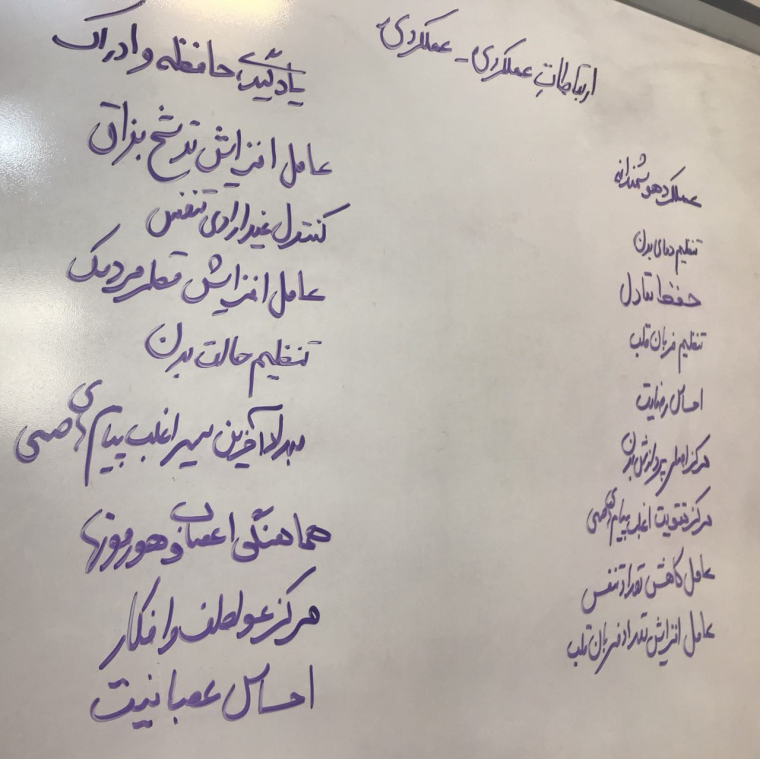 ارتباطاتِ عملکردی - عملکردی
عملکرد هوشمندانه
تنظیم دمای بدن
حفظ تعادل
تنظیم ضربان قلب
احساس رضایت
مرکز اصلی پردازش بدن
مرکز تقویت اغلب پیام‌های حسی
عامل کاهش تعداد تنفس
عامل افزایش تعداد ضربان قلب
یادگیری، حافظه و ادراک
عامل افزایش ترشح بزاق
کنترل غیرارادی تنفس
عامل افزایش قطر مردمک
تنظیم حالت بدن
آخرین مسیر اغلب پیام‌های حسی
هماهنگی اعصاب و هورمونها
مرکز عواطف و افکار
احساس عصبانیت